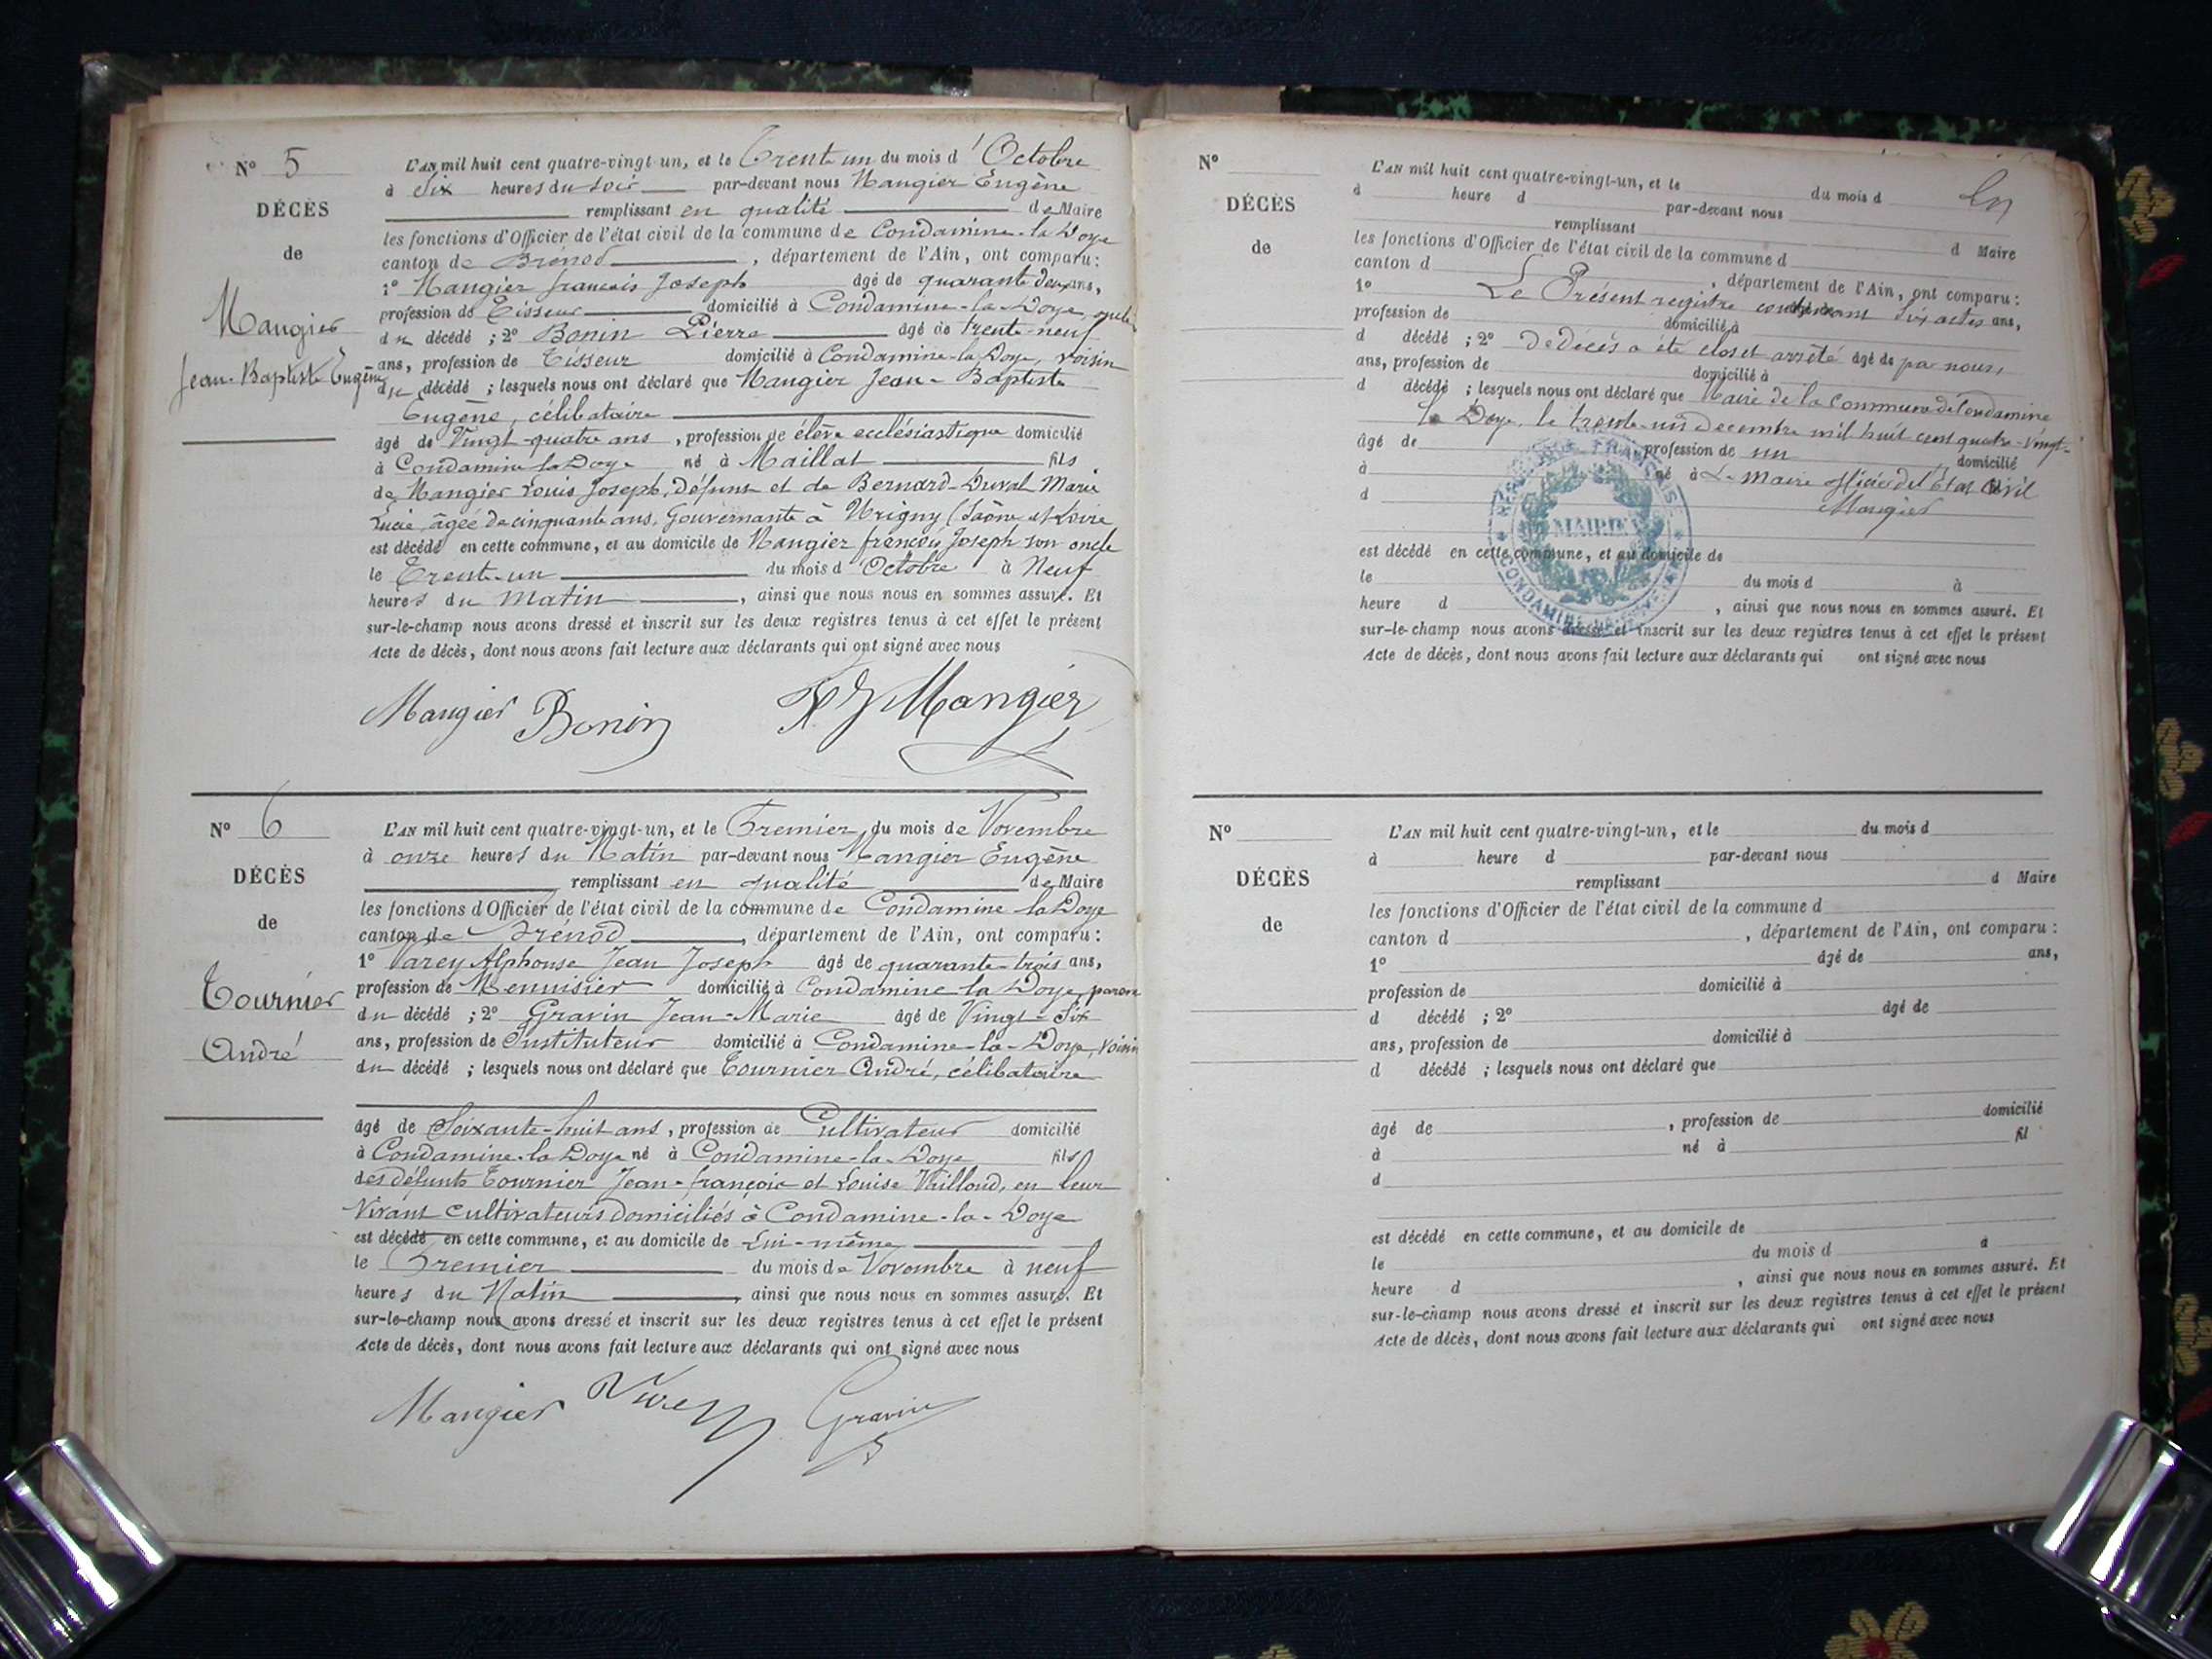 N° 5
DÉCÈS
de
Mangier
Jean-Baptiste Eugène
L'AN mil huit cent quatre-vingt-un, et le Trente un du mois d'Octobre
à Six heures du soir par-devant nous Mangier Eugène
remplissant en qualité de Maire
les fonctions d'Officier de l'état civil de la commune de Condamine-la-Doye
canton de Brénod, département de l'Ain, ont comparu:
1° Mangier françois Joseph âgé de quarante deux ans,
profession de Tisseur domicilié à Condamine-la-Doye, oncle
du décédé ; 2° Bonin Pierre âgé de trente-neuf
ans, profession de Tisseur domicilié à Condamine-la-Doye, voisin
du décédé ; lesquels nous ont déclaré que Mangier Jean-Baptiste
Eugène, célibataire
âgé de Vingt-quatre ans, profession de élève ecclésiastique domicilié
à Condamine la Doye né à Maillat fils
de Mangier Louis Joseph, Défunt et de Bernard-Duval Marie
Lucie âgée de cinquante ans, Gouvernante à Urigny (Saône et Loire
est décédé en cette commune, et au domicile de Mangier françois Joseph son oncle
le Trent-un du mois d'Octobre à Neuf
heures du Matin, ainsi que nous nous en sommes assuré. Et
sur-le-champ nous avons dressé et inscrit sur les deux registres tenus à cet effet le présent
Acte de décès, dont nous avons fait lecture aux déclarants qui ont signé avec nous
Mangier Bonin Mangier
N° 6
DÉCÈS
de
Tournier
André
L'AN mil huit cent quatre-vingt-un, et le Premier du mois de Novembre
à onze heures du Matin par-devant nous Mangier Eugène
remplissant en qualité de Maire
les fonctions d'Officier de l'état civil de la commune de Condamine la Doye
canton de Brénod, département de l'Ain, ont comparu:
1° Varey Alphonse Jean Joseph âgé de quarante-trois ans,
profession de Menuisier domicilié à Condamine la Doye, parent
du décédé ; 2° Gravin Jean-Marie âgé de Vingt-Six
ans, profession de Instituteur domicilié à Condamine-la-Doye, voisin
du décédé ; lesquels nous ont déclaré que Tournier André, célibataire
âgé de Soixante-huit ans, profession de Cultivateur domicilié
à Condamine-la Doye né à Condamine-la-Doye fils
des défunts Tournier Jean-françois et Louise Vailloud, en leur
Vivant cultivateurs domiciliés à Condamine-la-Doye
est décédé en cette commune, et au domicile de Lui-même
le Premier du mois de Novembre à neuf
heures du Matin, ainsi que nous nous en sommes assuré. Et
sur-le-champ nous avons dressé et inscrit sur les deux registres tenus à cet effet le présent
Acte de décès, dont nous avons fait lecture aux déclarants qui ont signé avec nous
Mangier Varey Gravin
N°
DÉCÈS
de
L'AN mil huit cent quatre-vingt-un, et le du mois d
à heure d par-devant nous
remplissant d Maire
les fonctions d'Officier de l'état civil de la commune d
canton d , département de l'Ain, ont comparu :
1° Le Présent registre contenant Six actes ans,
profession de domicilié à
d décédé ; 2° de Décès a été clos et arrêté âgé de par nous,
ans, profession de domicilié à
d décédé ; lesquels nous ont déclaré que Maire de la Commune de Condamine
la Doye, le trente-un Decembre mil huit cent quatre-Vingt-
âgé de profession de un domicilié
à né à Le Maire officier de l'Etat Civil
d Mangier
RÉPUBLIQUE FRANÇAISE
MAIRIE
CONDAMINE
est décédé en cette commune, et au domicile de
le du mois d à
heure d , ainsi que nous nous en sommes assuré. Et
sur-le-champ nous avons dressé et inscrit sur les deux registres tenus à cet effet le présent
Acte de décès, dont nous avons fait lecture aux déclarants qui ont signé avec nous
N°
DÉCÈS
de
L'AN mil huit cent quatre-vingt-un, et le du mois d
à heure d par-devant nous
remplissant d Maire
les fonctions d'Officier de l'état civil de la commune d
canton d , département de l'Ain, ont comparu :
1° âgé de ans,
profession de domicilié à
d décédé ; 2° âgé de
ans, profession de domicilié à
d décédé ; lesquels nous ont déclaré que
âgé de , profession de domicilié
à né à fil
d
est décédé en cette commune, et au domicile de
le du mois d à
heure d , ainsi que nous nous en sommes assuré. Et
sur-le-champ nous avons dressé et inscrit sur les deux registres tenus à cet effet le présent
Acte de décès, dont nous avons fait lecture aux déclarants qui ont signé avec nous